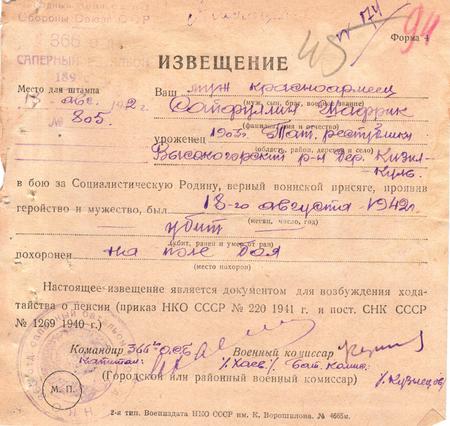 Обороны Союза ССР
366
САПЕРНЫЙ
189
Форма 4
45
94
ИЗВЕЩЕНИЕ
Место для штампа
Ваш муж красноармеец
(муж, сын, брат, военное звание)
авг. 1942 г.
№ 805.
(фамилия, имя и отчество)
уроженец 1903г. Тат. республики
(область, район, деревня и село)
Высокогорский р-н дер. Кизил-
Куль.
в бою за Социалистическую Родину, верный воинской присяге, проявив
геройство и мужество, был 18-го августа 1942г.
(месяц, число, год)
убит
(убит, ранен и умер от ран)
похоронен на поле боя
(место похорон)
Настоящее извещение является документом для возбуждения хода-
тайства о пенсии (приказ НКО СССР № 220 1941 г. и пост. СНК СССР
№ 1269 1940 г.)
Командир 366 ОСБ Военный комиссар
Капитан: /Хаев/ Бат. комис.
(Городской или районный военный комиссар) /Кузнецов
М. П.
2-я тип. Воениздата НКО СССР им. К. Ворошилова. № 4665м.